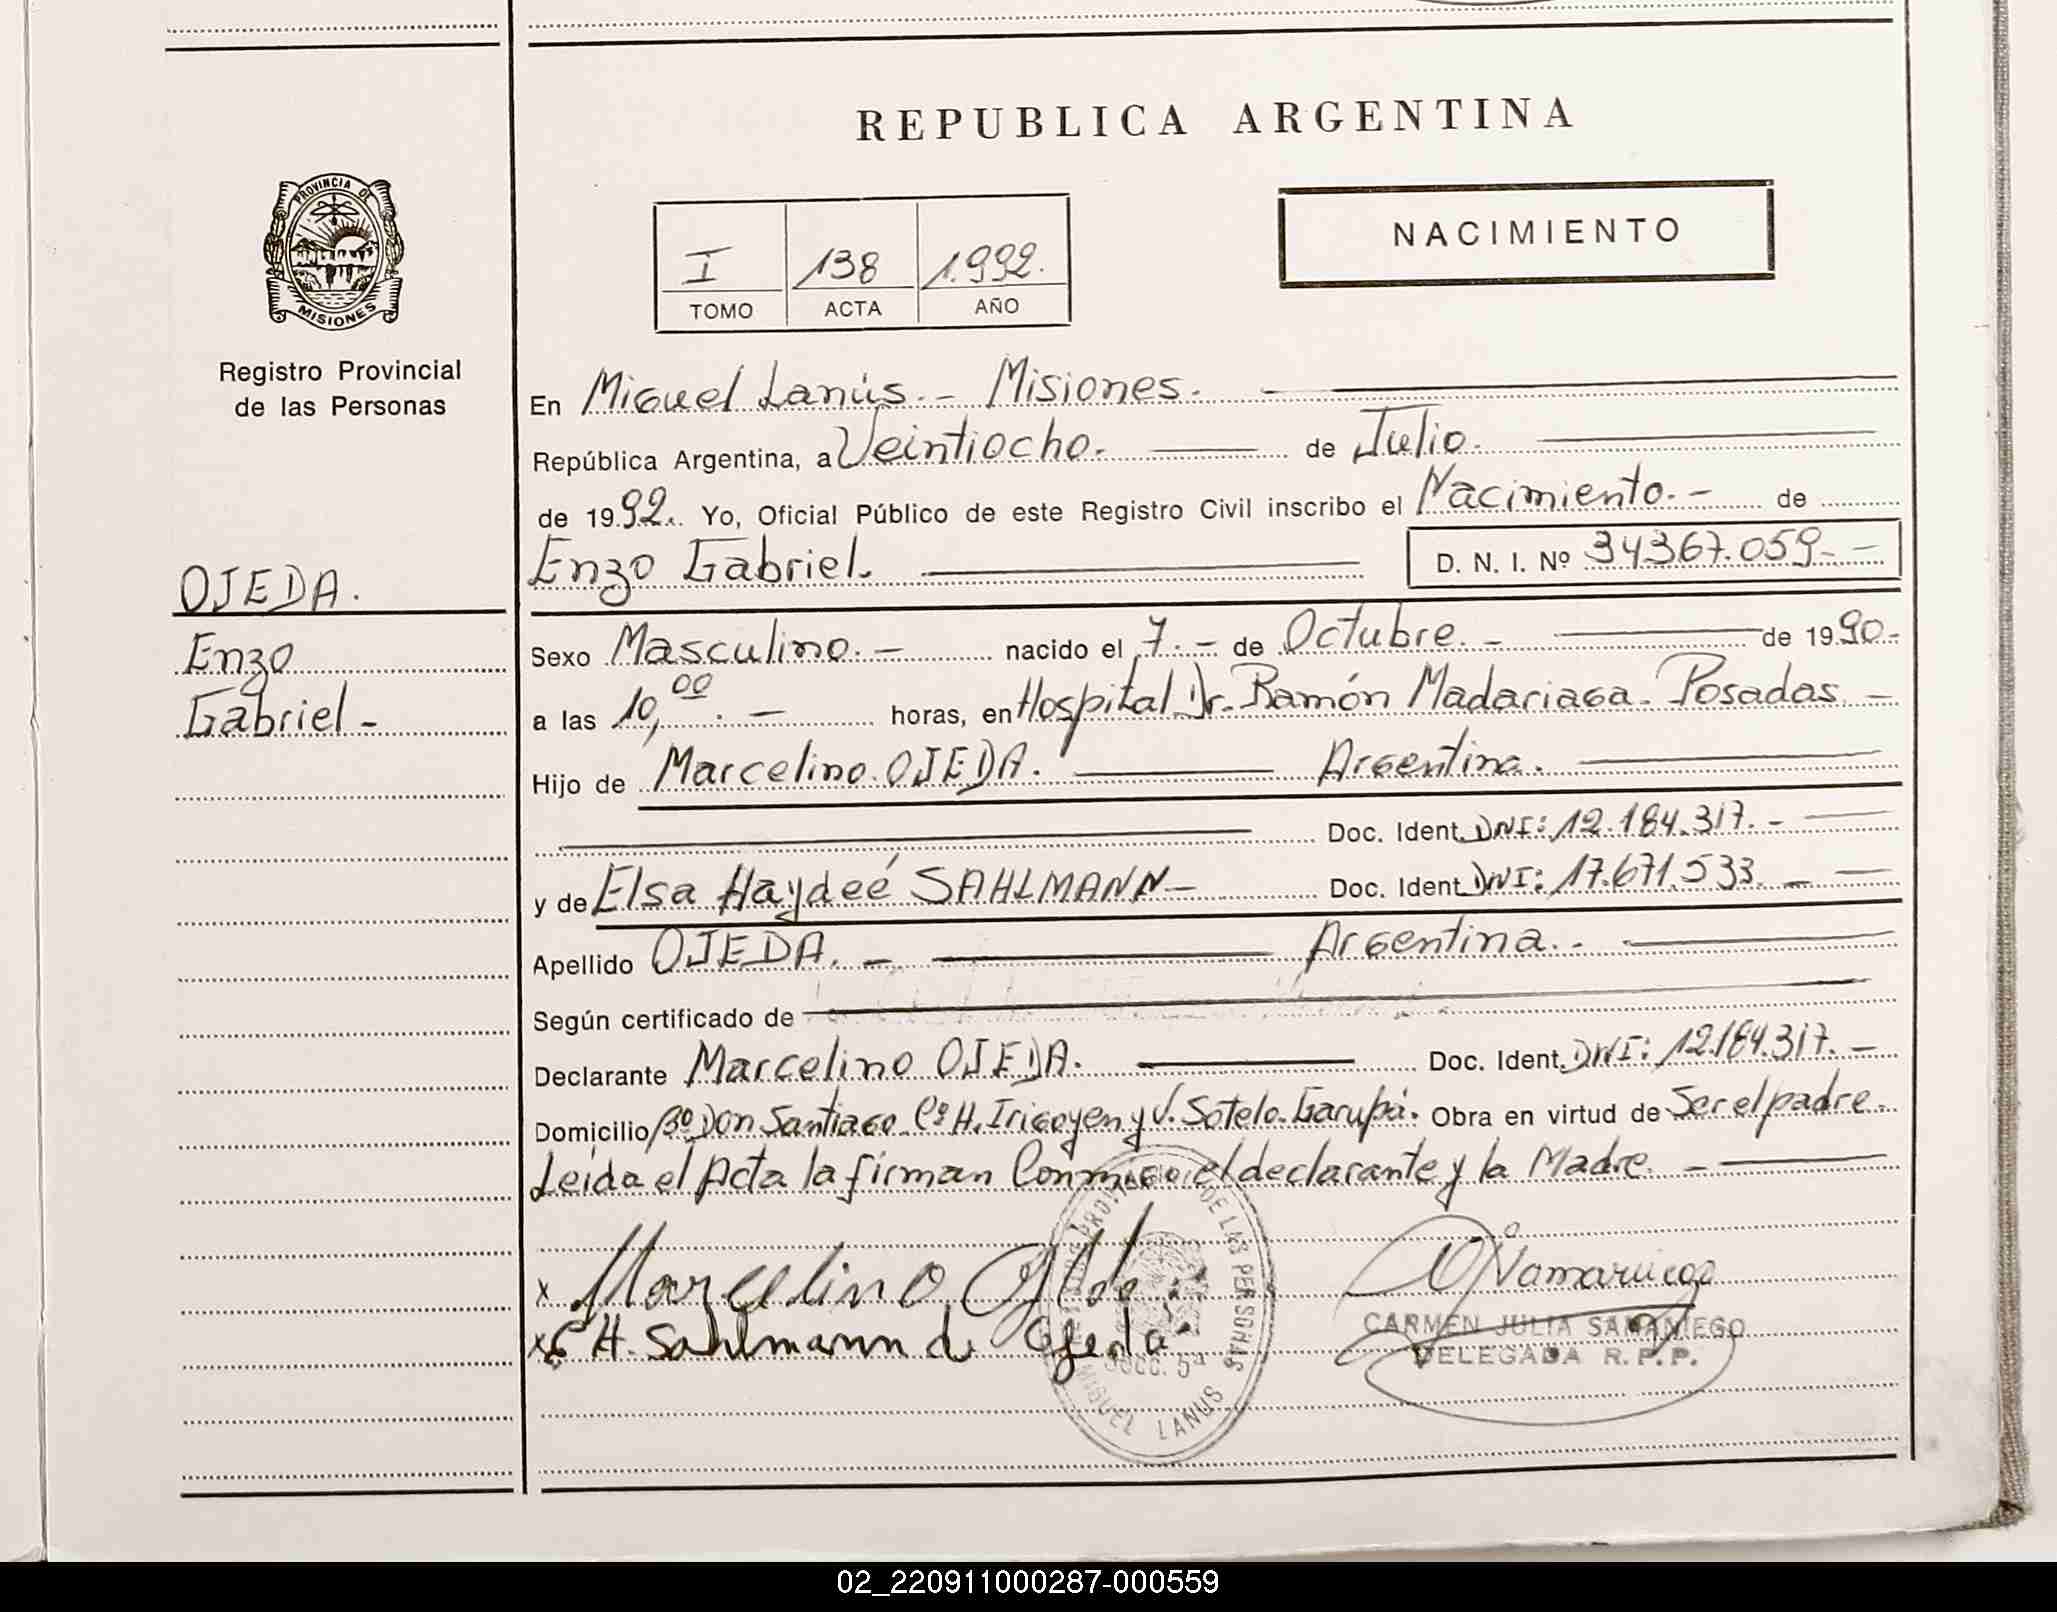 REPUBLICA ARGENTINA
PROVINCIA DE
MISIONES
Registro Provincial
de las Personas
I 138 1.992.
TOMO ACTA AÑO
NACIMIENTO
En Miguel Lanús.- Misiones.
República Argentina, a Veintiocho. de Julio.
de 1992. Yo, Oficial Público de este Registro Civil inscribo el Nacimiento.- de
Enzo Gabriel. D. N. I. Nº 34367.059.-
OJEDA.
Enzo
Gabriel-
Sexo Masculino.- nacido el 7.- de Octubre.- de 1990-
a las 10,00.- horas, en Hospital Dr. Ramón Madariaga. Posadas.-
Hijo de Marcelino OJEDA. Argentina.
Doc. Ident. DNI: 12.184.317.-
y de Elsa Haydeé SAHLMANN- Doc. Ident. DNI: 17.671.533.-
Apellido OJEDA.- Argentina.-
Según certificado de
Declarante Marcelino OJEDA. Doc. Ident. DNI: 12.184.317.-
Domicilio Bº Don Santiago Cº H. Irigoyen y V. Sotelo. Garupá. Obra en virtud de Ser el padre.
Leída el Acta la firman Conmigo el declarante y la Madre.-
x Marcelino Ojeda
x E H. Sahlmann de Ojeda
DE LAS PERSONAS
Secc. 5ª
MIGUEL LANUS
CARMEN JULIA SAMANIEGO
DELEGADA R.P.P.
02_220911000287-000559